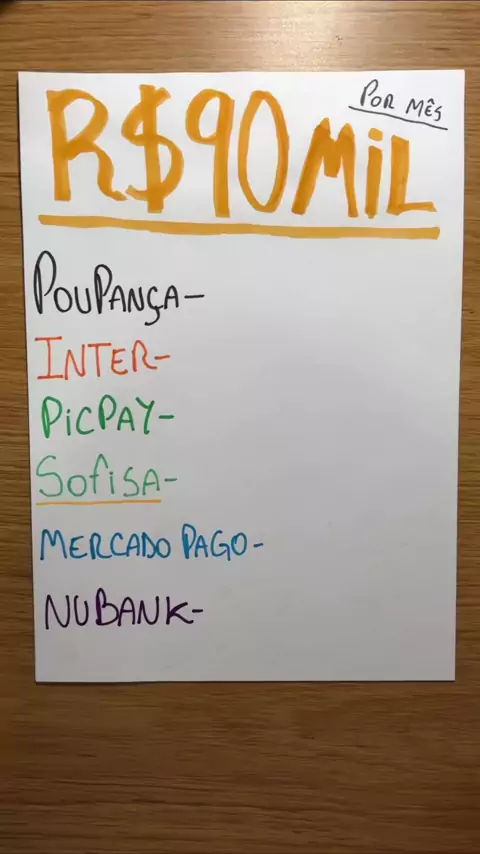 R$90MiL
POR MÊS
POUPANÇA-
INTER-
PiCPAY-
SofiSA-
MERCADO PAGO-
NUBANK-